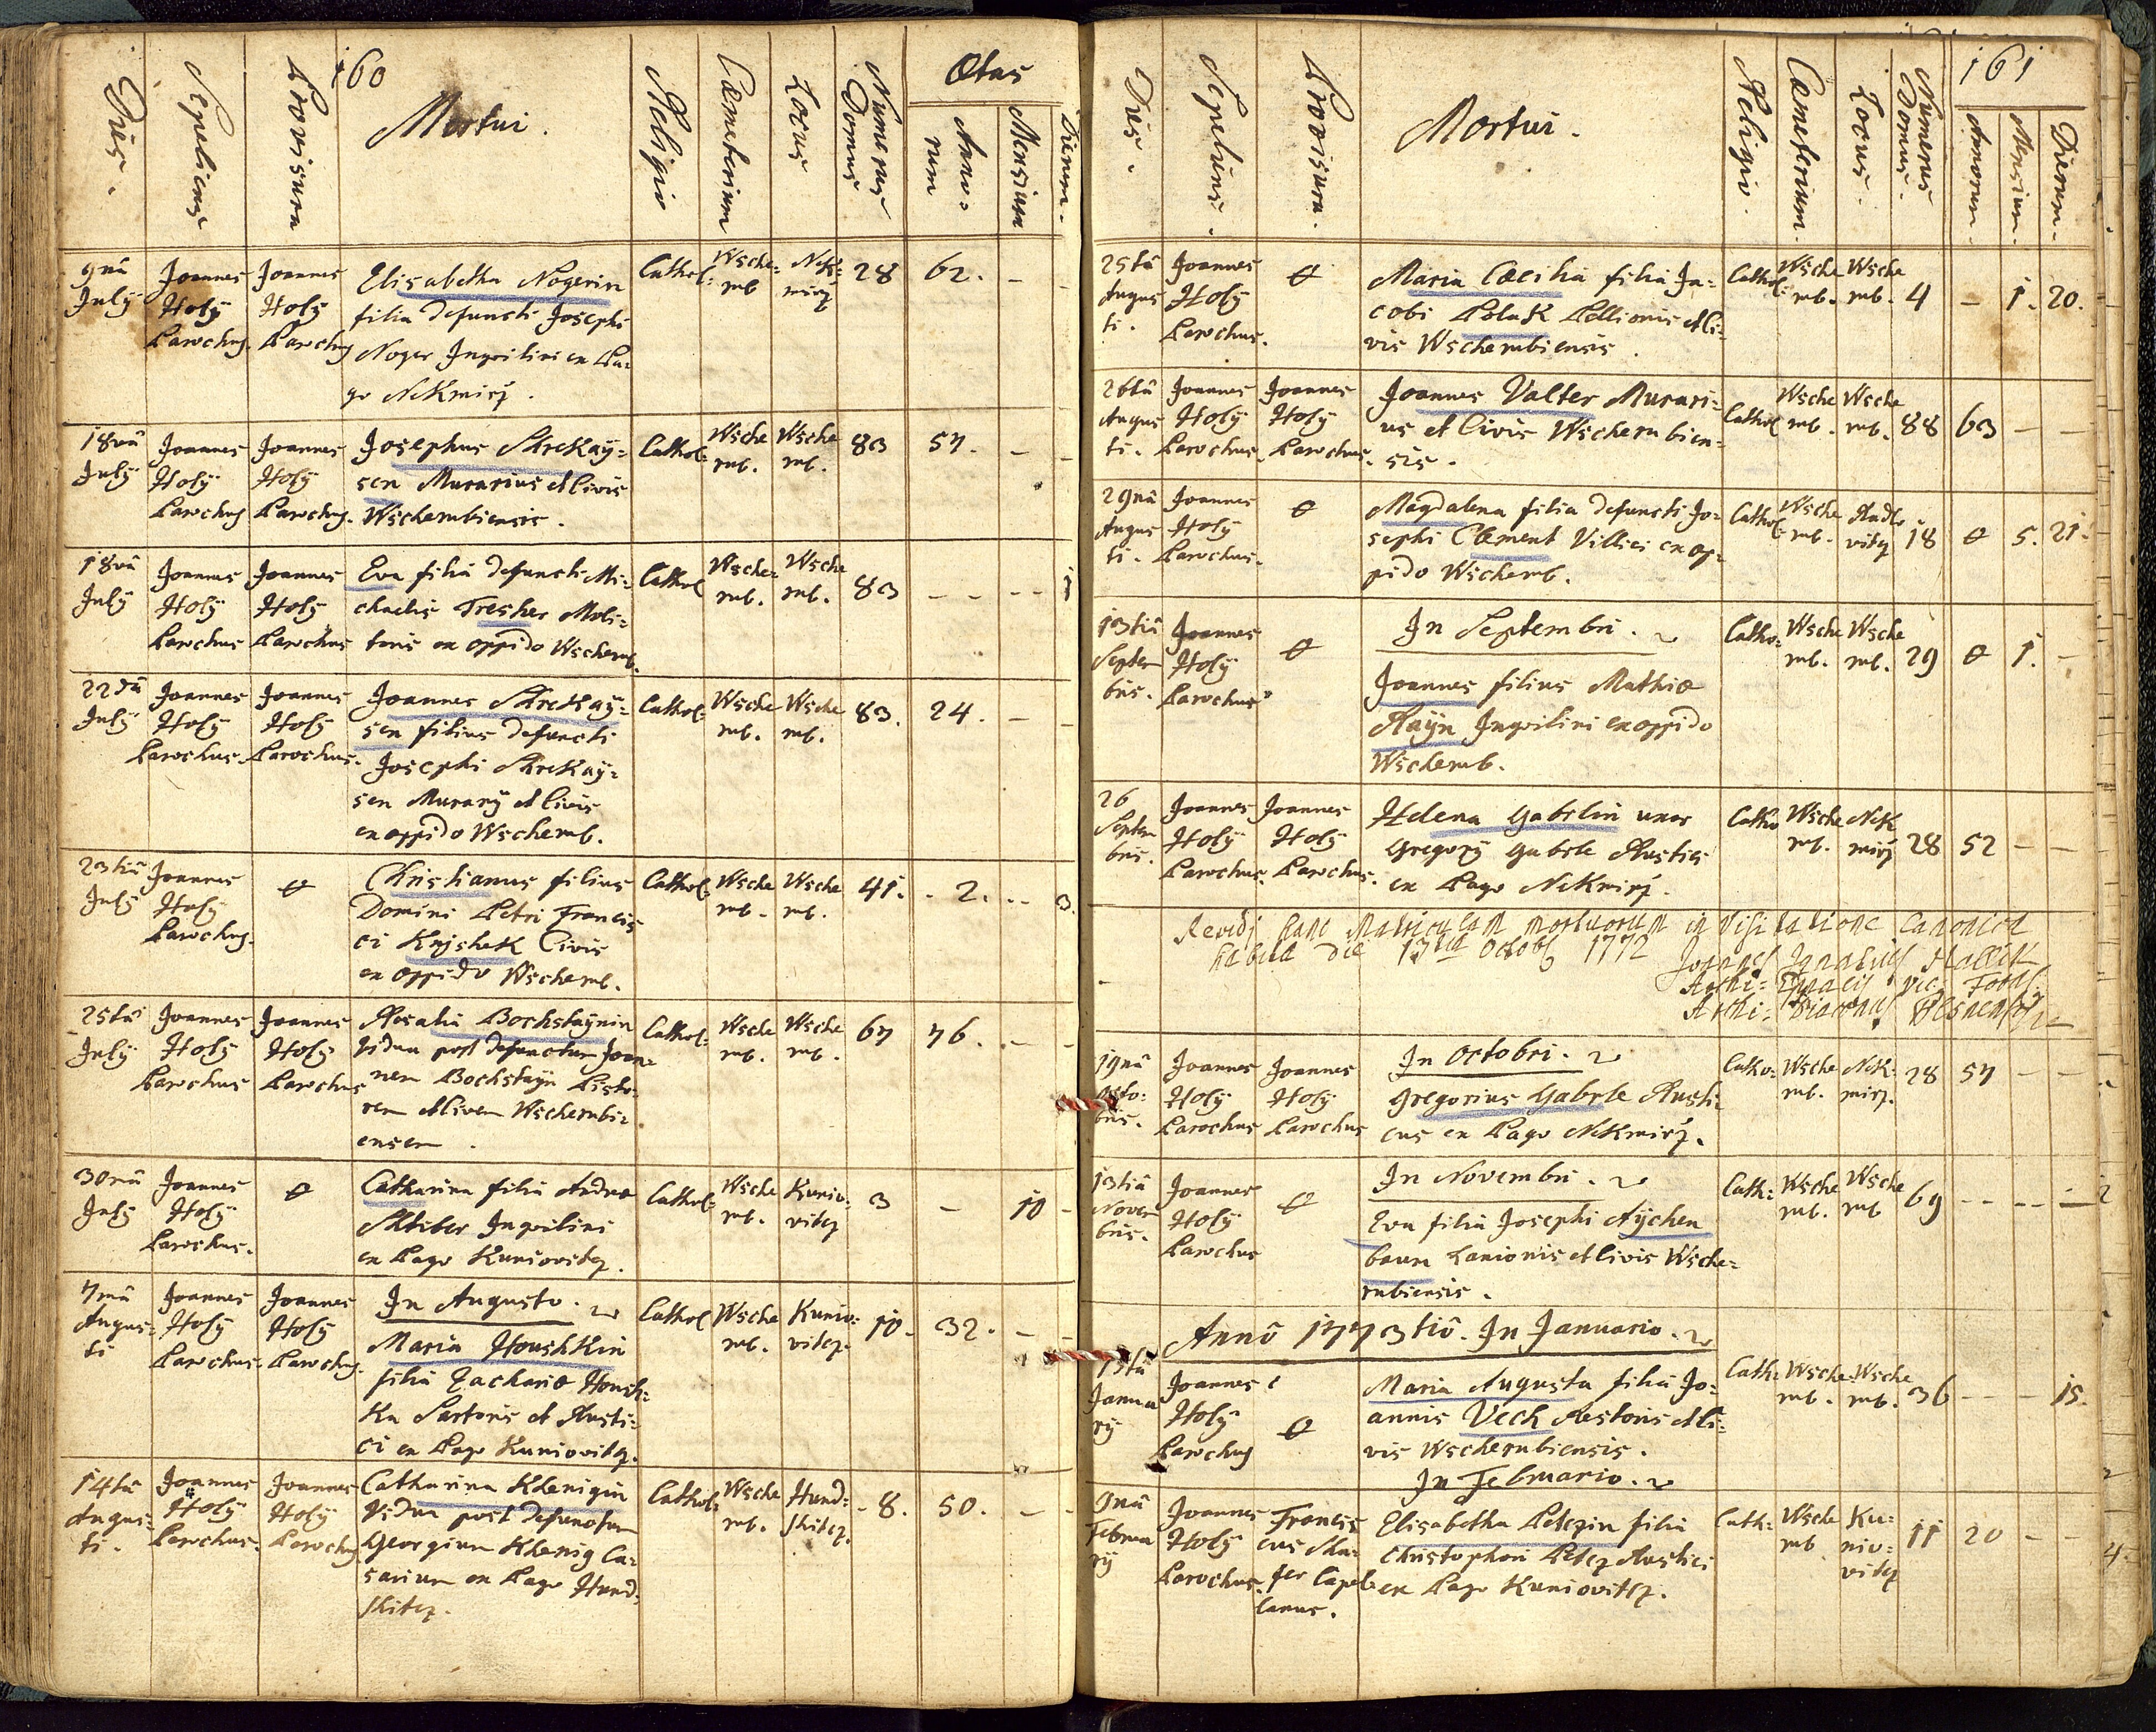 160
Dies.
Sepeliens
Provisura
Mortui.
Religio
Cœmeterium
Locus
Numerus Domus
Œtas
Anno=
rum
Mensium
Dierum.
9nâ
July
Joannes
Holÿ
Parochus
Joannes
Holÿ
Parochus
Elisabetha Nogerin
filia defuncti Josephi
Noger Inquilini ex Pa=
go Nekmirz.
Cathol:
Wsche=
rub
Nek=
mirz
28
62.
–
–
18vâ
July
Joannes
Holÿ
Parochus
Joannes
Holÿ
Parochus.
Josephus Strekaÿ=
sen Murarius et Civis
Wscherubiensis.
Cathol:
Wsche
rub.
Wsche
rub.
83
57.
–
–
18vâ
July
Joannes
Holÿ
Parochus
Joannes
Holÿ
Parochus
Eva filia defuncti Mi=
chaelis Tresher Moli=
toris ex oppido Wscherub.
Cathol
Wsche=
rub.
Wsche
rub.
83
– –
– –
1
22dâ
July
Joannes
Holÿ
Parochus.
Joannes
Holÿ
Parochus.
Joannes Strekaÿ=
sen filius defuncti
Josephi Strekaÿ=
sen Murarÿ et Civis
ex oppido Wscherub.
Cathol:
Wsche
rub.
Wsche
rub.
83.
24.
–
–
23tiâ
July
Joannes
Holÿ
Parochus.
Christianus filius
Domini Petri Francis
ci Knjshek Civis
ex oppido Wscherub.
Cathol:
Wsche
rub.
Wsche
rub.
41.
- 2.
- -
3.
25tâ
July
Joannes
Holÿ
Parochus
Joannes
Holÿ
Parochus
Rosalia Bochstaÿnin
Vidua post defunctum Joan=
nem Bochstaÿn Pisto=
rem et Civem Wscherubi=
ensem.
Cathol:
Wsche
rub.
Wsche
rub.
67
76.
–
–
30mâ
July
Joannes
Holÿ
Parochus.
Catharina filia Andreæ
Shtiber Inquilini
ex Pago Kuniovitz.
Cathol:
Wsche
rub.
Kunio=
vitz
3
–
10
–
7mâ
Augus=
ti
Joannes
Holÿ
Parochus.
Joannes
Holÿ
Parochus.
In Augusto.
Maria Houshkin
filia Zachariæ Housh=
ka Sartoris et Rusti=
ci ex Pago Kuniovitz.
Cathol
Wsche
rub.
Kunio=
vitz.
10.
32.
–
–
14tâ
Augus=
ti.
Joannes
Holÿ
Parochus.
Joannes
Holÿ
Parochus
Catharina Khenigin
Vidua post defunctum
Georgium Khenig Ca=
sarium ex Pago Hund=
shitz.
Cathol:
Wsche
rub.
Hund=
shitz.
8.
50.
–
–
161
Dies.
Sepeliens.
Provisura.
Mortui.
Religio.
Cœmeterium.
Locus.
Numerus Domus.
Annorum.
Mensium.
Dierum.
25tâ
Augus
ti.
Joannes
Holÿ
Parochus.
Maria Cæcilia filia Ja=
cobi Polak Pellionis et Ci=
vis Wscherubiensis.
Cathol:
Wsche
rub.
Wsche
rub.
4
–
1.
20.
26tâ
Augus
ti.
Joannes
Holÿ
Parochus.
Joannes
Holÿ
Parochus.
Joannes Valter Murari=
us et Civis Wscherubien=
sis.
Cathol
Wsche
rub.
Wsche
rub.
88
63
–
–
29nâ
Augus
ti.
Joannes
Holÿ
Parochus.
Magdalena filia defuncti Jo=
sephi Clement Villici ex op=
pido Wscherub.
Cathol:
Wsche
rub.
Radlo
vitz
18
5.
21.
13tiâ
Septem
bris.
Joannes
Holÿ
Parochus
In Septembri.
Joannes filius Mathiæ
Raÿn Inquilini ex oppido
Wscherub.
Catho=
Wsche
rub.
Wsche
rub.
29
1.
–
26
Septem
bris.
Joannes
Holÿ
Parochus.
Joannes
Holÿ
Parochus.
Helena Gabrlin uxor
Gregorÿ Gabrle Rustici
ex Pago Nekmirz.
Catho
Wsche
rub.
Nek
mirz
28
52
–
–
Revidi hanc Matriculam mortuorum in Visitatione Canonica
habita die 13tia Octobris 1772
Joannes Ignatius
Archi=
Archi= Diaconus Plsnensis
19nâ
octo=
bris.
Joannes
Holÿ
Parochus
Joannes
Holÿ
Parochus
In Octobri.
Gregorius Gabrle Rusti
cus ex Pago Nekmirz.
Catho=
Wsche
rub.
Nek=
mirz.
28
57
–
–
13tiâ
Novem
bris.
Joannes
Holÿ
Parochus
In Novembri.
Eva filia Josephi Aÿchen
baum Lanionis et Civis Wsche=
rubiensis.
Cath:
Wsche
rub.
Wsche
rub
69
– –
– –
2
Annô 1773tiô. In Januario.
13tiâ
Janua
rÿ
Joannes
Holÿ
Parochus
Maria Augusta filia Jo=
annis Vech Restoris et Ci=
vis Wscherubiensis.
Cath:
Wsche
rub.
Wsche
rub.
36
–
–
15.
In Februario.
9nâ
Februa
rÿ
Joannes
Holÿ
Parochus.
Francis
cus Sha=
fer Capel=
lanus.
Elisabetha Petzin filia
Christophori Petz Rustici
ex Pago Kuniovitz.
Cath:
Wsche
rub
Ku=
nio=
vitz
11
20
–
–